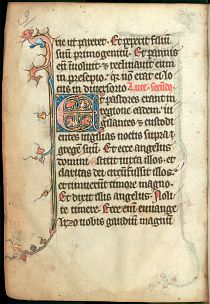 9
rie ut pareret. Et peperit filium
suum primogenitum. Et pannis
eum inuoluit. et reclinauit eum
in presepio. quia non erat ei lo
cus in diuersorio. Luce. secundo
Et pastores erant in
regione eadem. ui
gilantes et custodi
entes uigilias noctis supra
gregem suum. Et ecce angelus
domini stetit iuxta illos. et
claritas dei circumfulsit illos.
et timuerunt timore magno.
Et dixit illis angelus. Noli
te timere. Ecce enim euuange
lizo uobis gaudium magnum